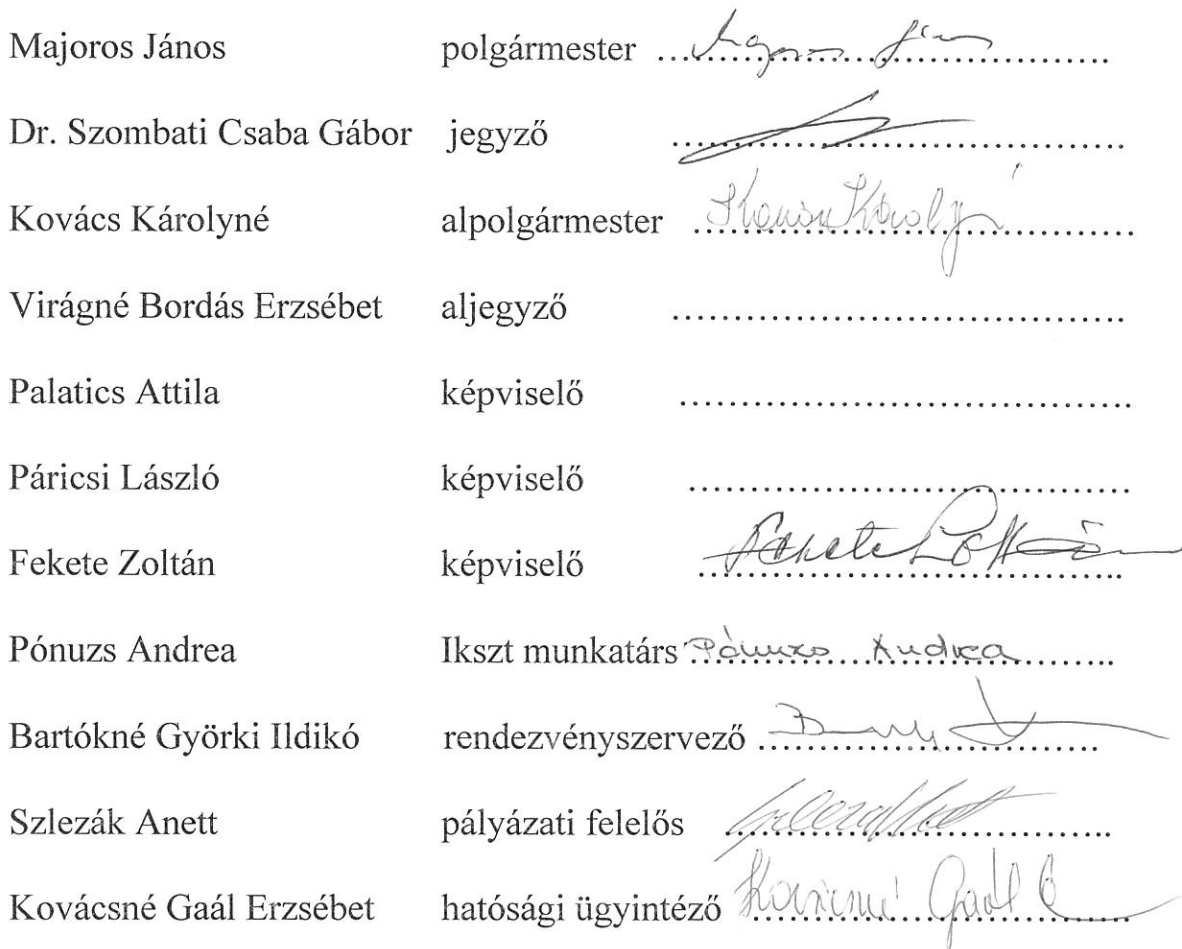 Majoros János polgármester ....................................
Dr. Szombati Csaba Gábor jegyző ....................................
Kovács Károlyné alpolgármester ....................................
Virágné Bordás Erzsébet aljegyző ....................................
Palatics Attila képviselő ....................................
Páricsi László képviselő ....................................
Fekete Zoltán képviselő Fekete Zoltán
Pónuzs Andrea Ikszt munkatárs Pónuzs Andrea
Bartókné Györki Ildikó rendezvényszervező ....................................
Szlezák Anett pályázati felelős ....................................
Kovácsné Gaál Erzsébet hatósági ügyintéző Kovácsné Gaál E